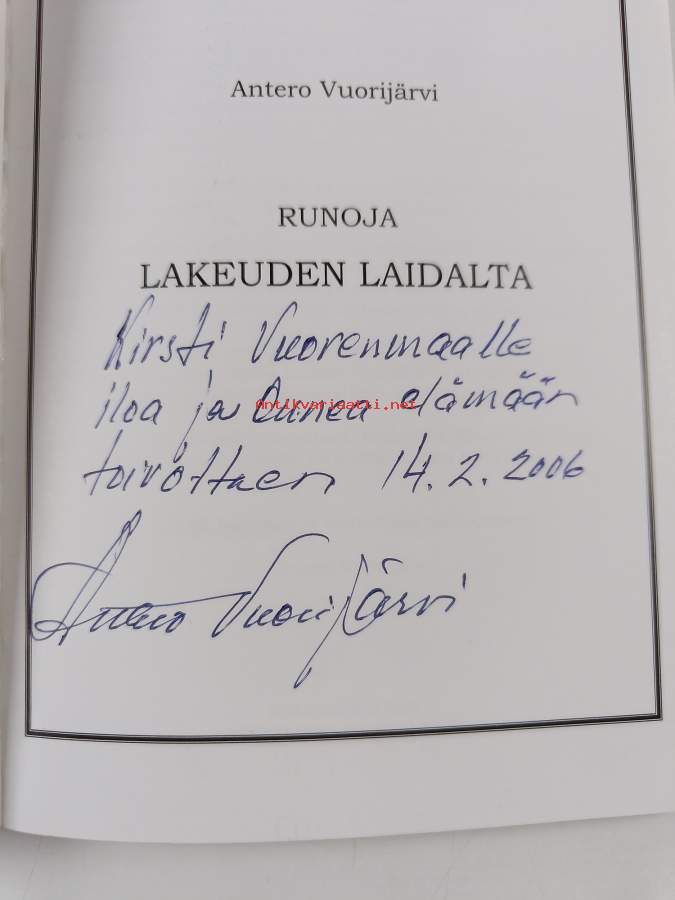 Antero Vuorijärvi
RUNOJA
LAKEUDEN LAIDALTA
Kirsti Vuorenmaalle
iloa ja onnea elämään
Antikvariaatti.net
toivottaen 14.2.2006
Antero Vuorijärvi